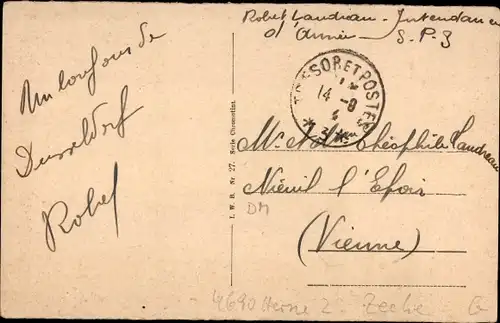 Robert Landreau - Intendance
d'Armée - S.P.3
Un bonjour de
Dusseldorf
Robert
TRESOR ET POSTES
14 -8
* 3 *
I. W. B. Nr. 27. Serie Chromotint.
Mr et Mme Théophile Landreau
Nieuil l'Espoir
(Vienne)
DM
4690 Herne 2 Zeche